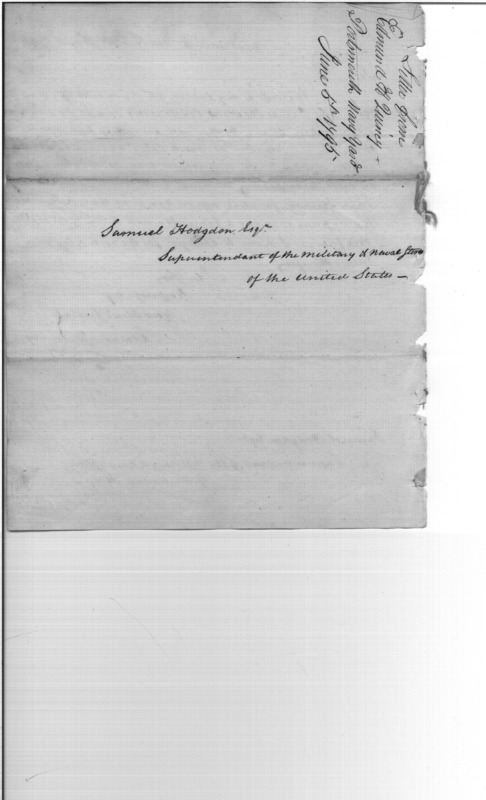 Letter from
Edmund H Quincy
Portsmouth Navy Yard
June 5th 1795
Samuel Hodgdon Esqr
Superintendant of the Military & Naval Stores
of the United States —